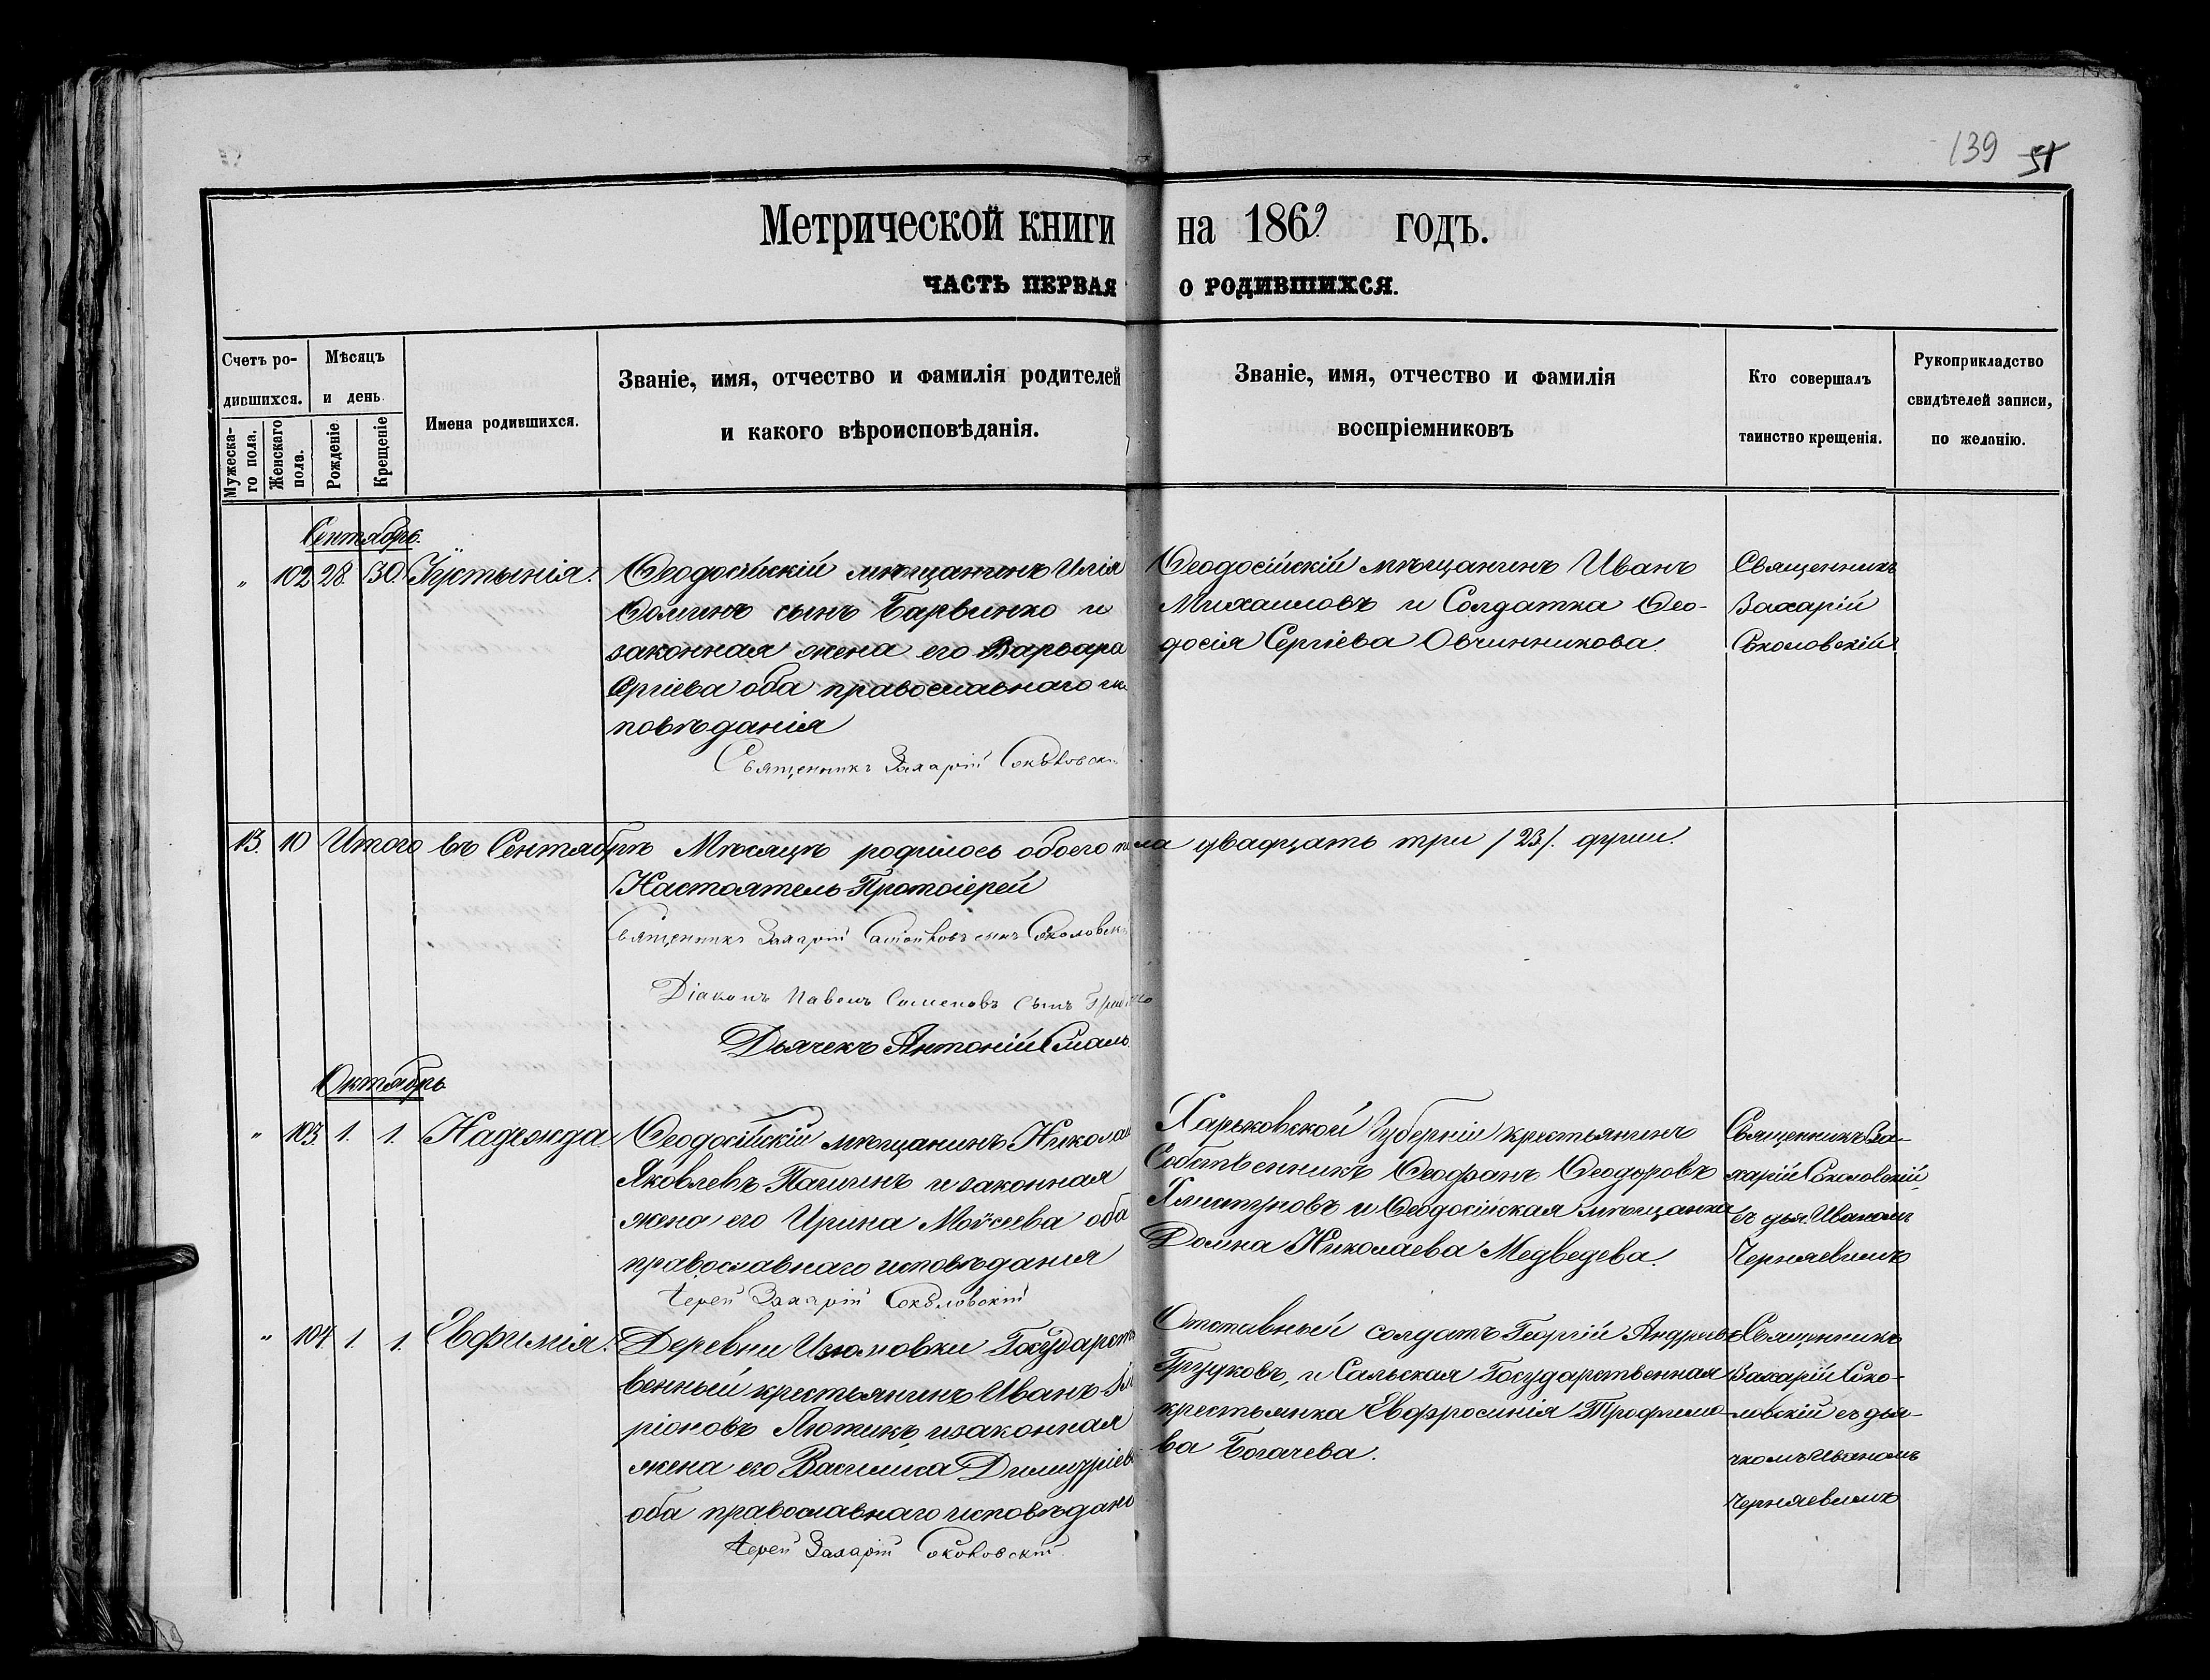 139 51
Метрической книги на 1869 годъ.
ЧАСТЬ ПЕРВАЯ О РОДИВШИХСЯ.
Счетъ ро-
дившихся.
Мужеска-
го пола.
Женскаго
пола.
Мѣсяцъ
и день
Рожденіе
Крещеніе
Имена родившихся.
Званіе, имя, отчество и фамилія родителей
и какого вѣроисповѣданія.
Званіе, имя, отчество и фамилія
воспріемниковъ
Кто совершалъ
таинство крещенія.
Рукоприкладство
свидѣтелей записи,
по желанію.
Сентябрь.
" 102 28 30. Іустинія.
Ѳеодосійскій мѣщанинъ Илія
Ѳоминъ сынъ Барвинко и
законная жена его Варвара
Сергіева оба православнаго ис
повѣданія
Священникъ Захарій Соколовскій
Ѳеодосійскій мѣщанинъ Иванъ
Михаиловъ и Солдатка Ѳео-
досія Сергіева Овчинникова
Священникъ
Захарій
Соколовскій
13. 10 Итого въ Сентябрѣ Мѣсяцѣ родилось обоего пола двадцать три /23/. души.
Настоятель Протоіерей
Священникъ Захарій сынъ Соколовск
Діаконъ Павелъ Семеновъ сынъ
Дьячекъ Антоній
Октябрь
" 103. 1. 1. Надежда
Ѳеодосійскій мѣщанинъ Никола
Яковлевъ и законная
жена его Ирина Моѵсеева оба
православнаго исповѣданія
Іерей Захарій Соколовскій
Харьковской Губерніи крестьянинъ
Собственникъ Ѳеофанъ Ѳеодоровъ
Хлистуновъ и Ѳеодосійская мѣщанка
Домна Николаева Медведева.
Священникъ За-
харій Соколовскій
съ дьяч. Иваномъ
Черняевымъ
" 104. 1. 1. Евфимія.
Деревни Изюмовки Государст
венный крестьянинъ Иванъ
ріоновъ Лютикъ, и законная
жена его Василиса Димитріева
оба православнаго исповѣдані
Іерей Захарій Соколовскій
Отставный солдатъ Георгій Андреевъ
Грудковъ, и Сальская Государственная
крестьянка Евфросинія Трофимо-
ва Богачева.
Священникъ
Захарій Соко-
ловскій съ дья-
чкомъ Иваномъ
Черняевымъ